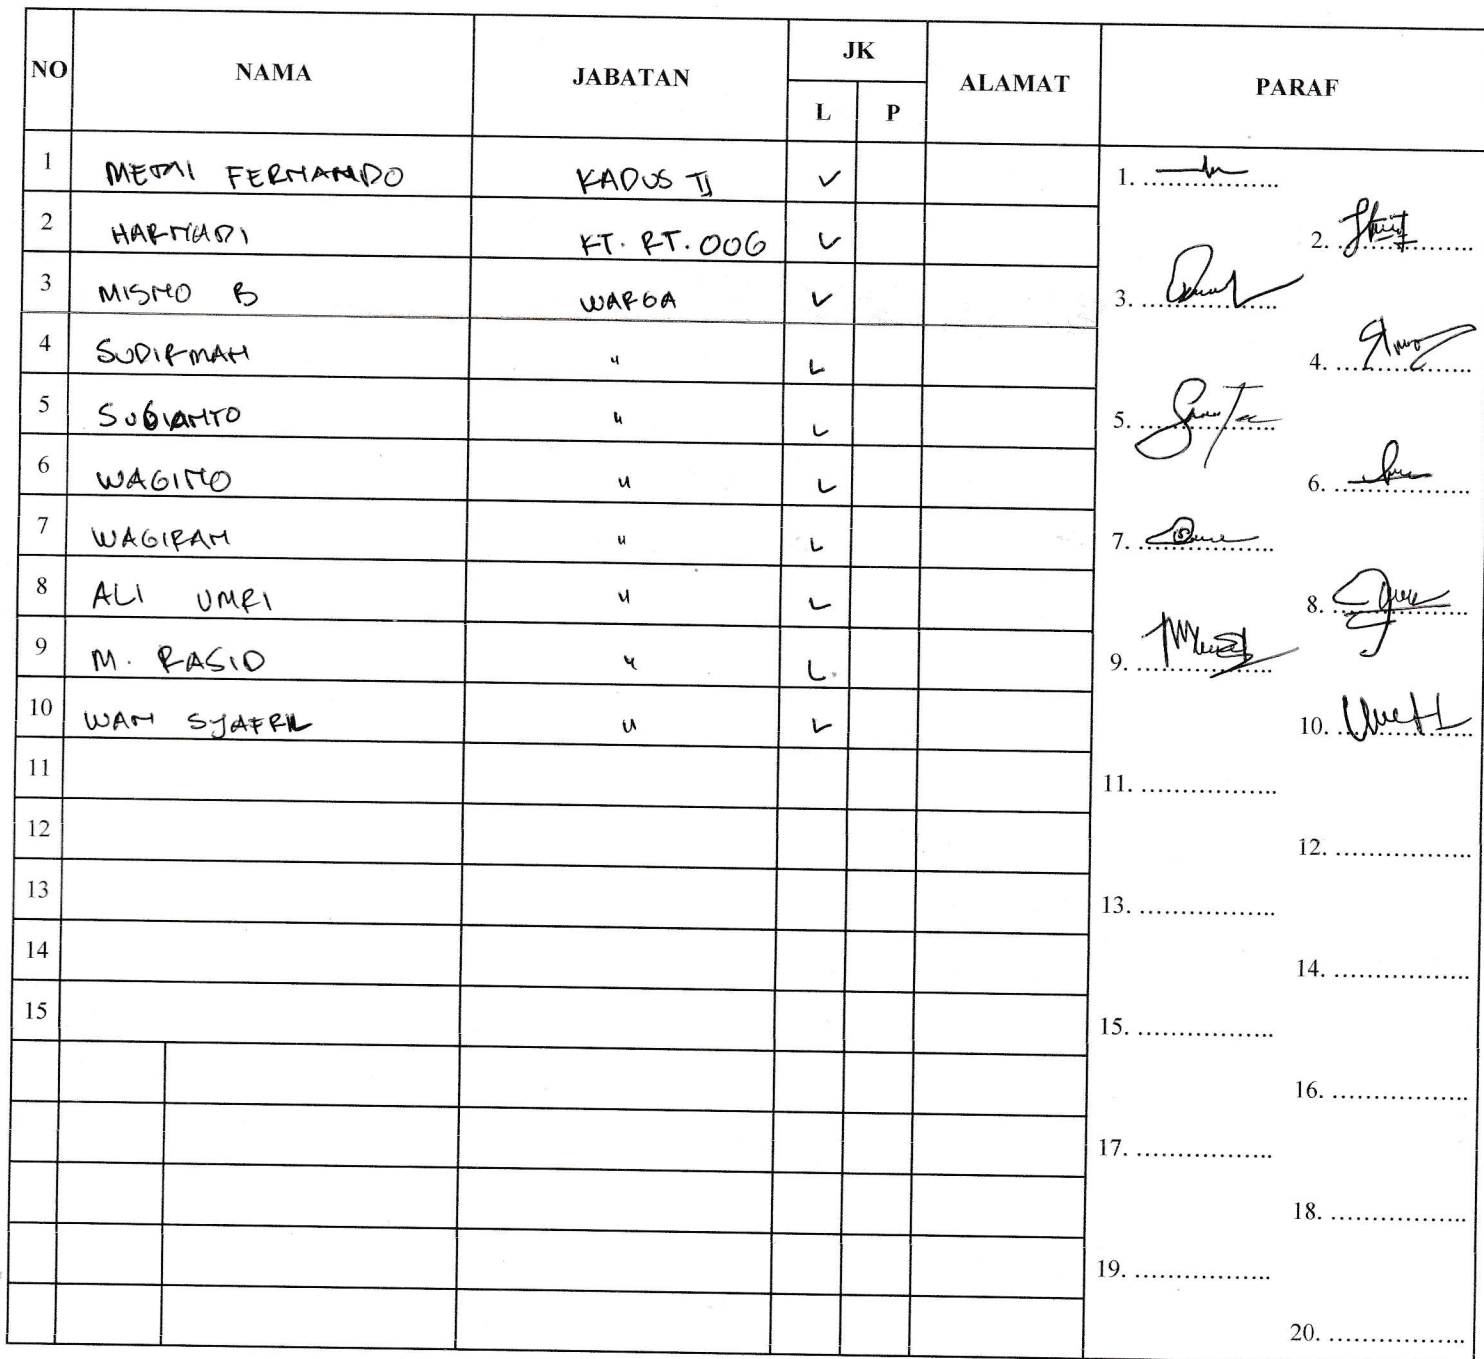 NO NAMA JABATAN JK ALAMAT PARAF
L P
1 FERNANDO KADUS II ✓ 1. ................
2 HARYADI KT. RT. 006 ✓ 2. ................
3 MISNO B WARGA ✓ 3. ................
4 SUDIRMAN " ✓ 4. ................
5 SUGIANTO " ✓ 5. ................
6 WAGINO " ✓ 6. ................
7 WAGIRAN " ✓ 7. ................
8 ALI UMRI " ✓ 8. ................
9 M. RASID " ✓ 9. ................
10 WAN SYAFRIL " ✓ 10. ................
11 11. ................
12 12. ................
13 13. ................
14 14. ................
15 15. ................
16. ................
17. ................
18. ................
19. ................
20. ................